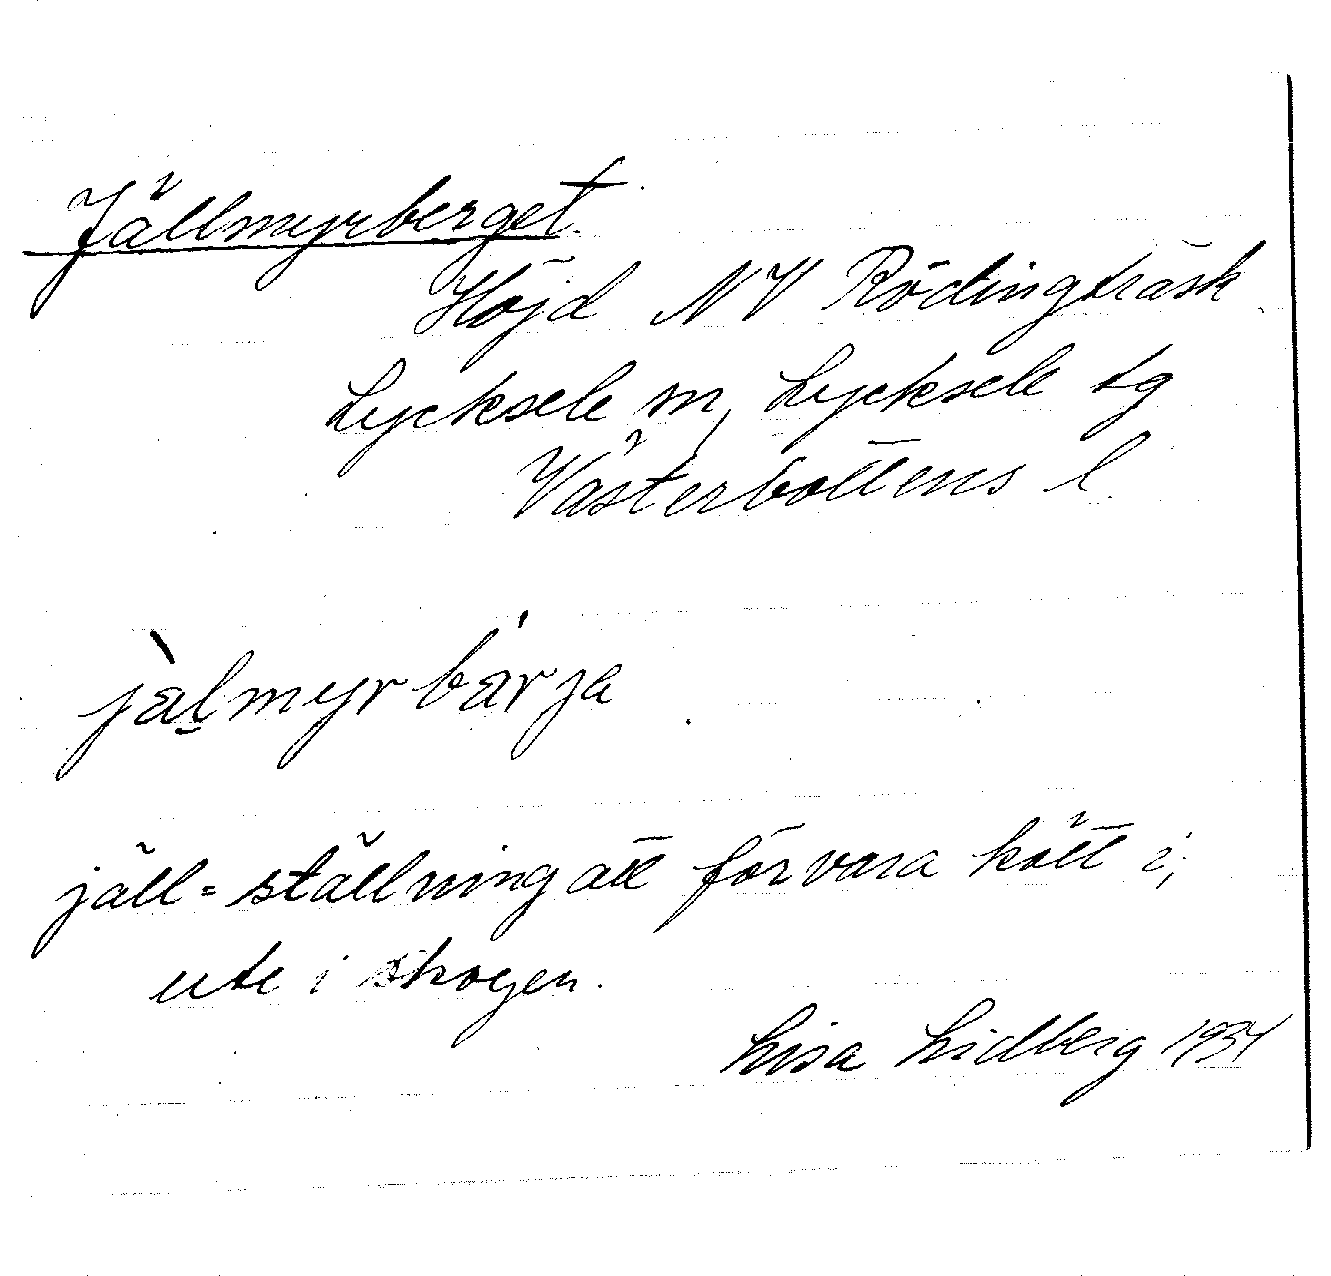 Jällmyrberget.
Höjd NV Rödingträsk
Lycksele sn, Lycksele tg
Västerbottens l.
jàlmyrbärja
jäll = ställning att förvara kött i,
ute i skogen.
Lisa Lidberg 1934